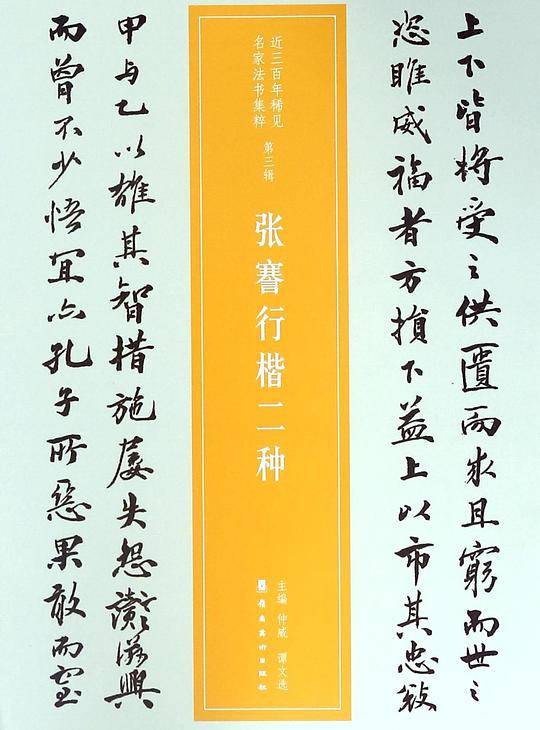 上下皆将受之供匱而求且窮而世之
恣睢威福者方損下益上以市其忠
近三百年稀见
名家法书集粹
第三辑
张謇行楷二种
主编 仲威 谭文选
嶺南美術出版社
甲与乙以雄其智措施屢失怨 滋興
而曾不少悟宜亦孔子所惡果敢而窒